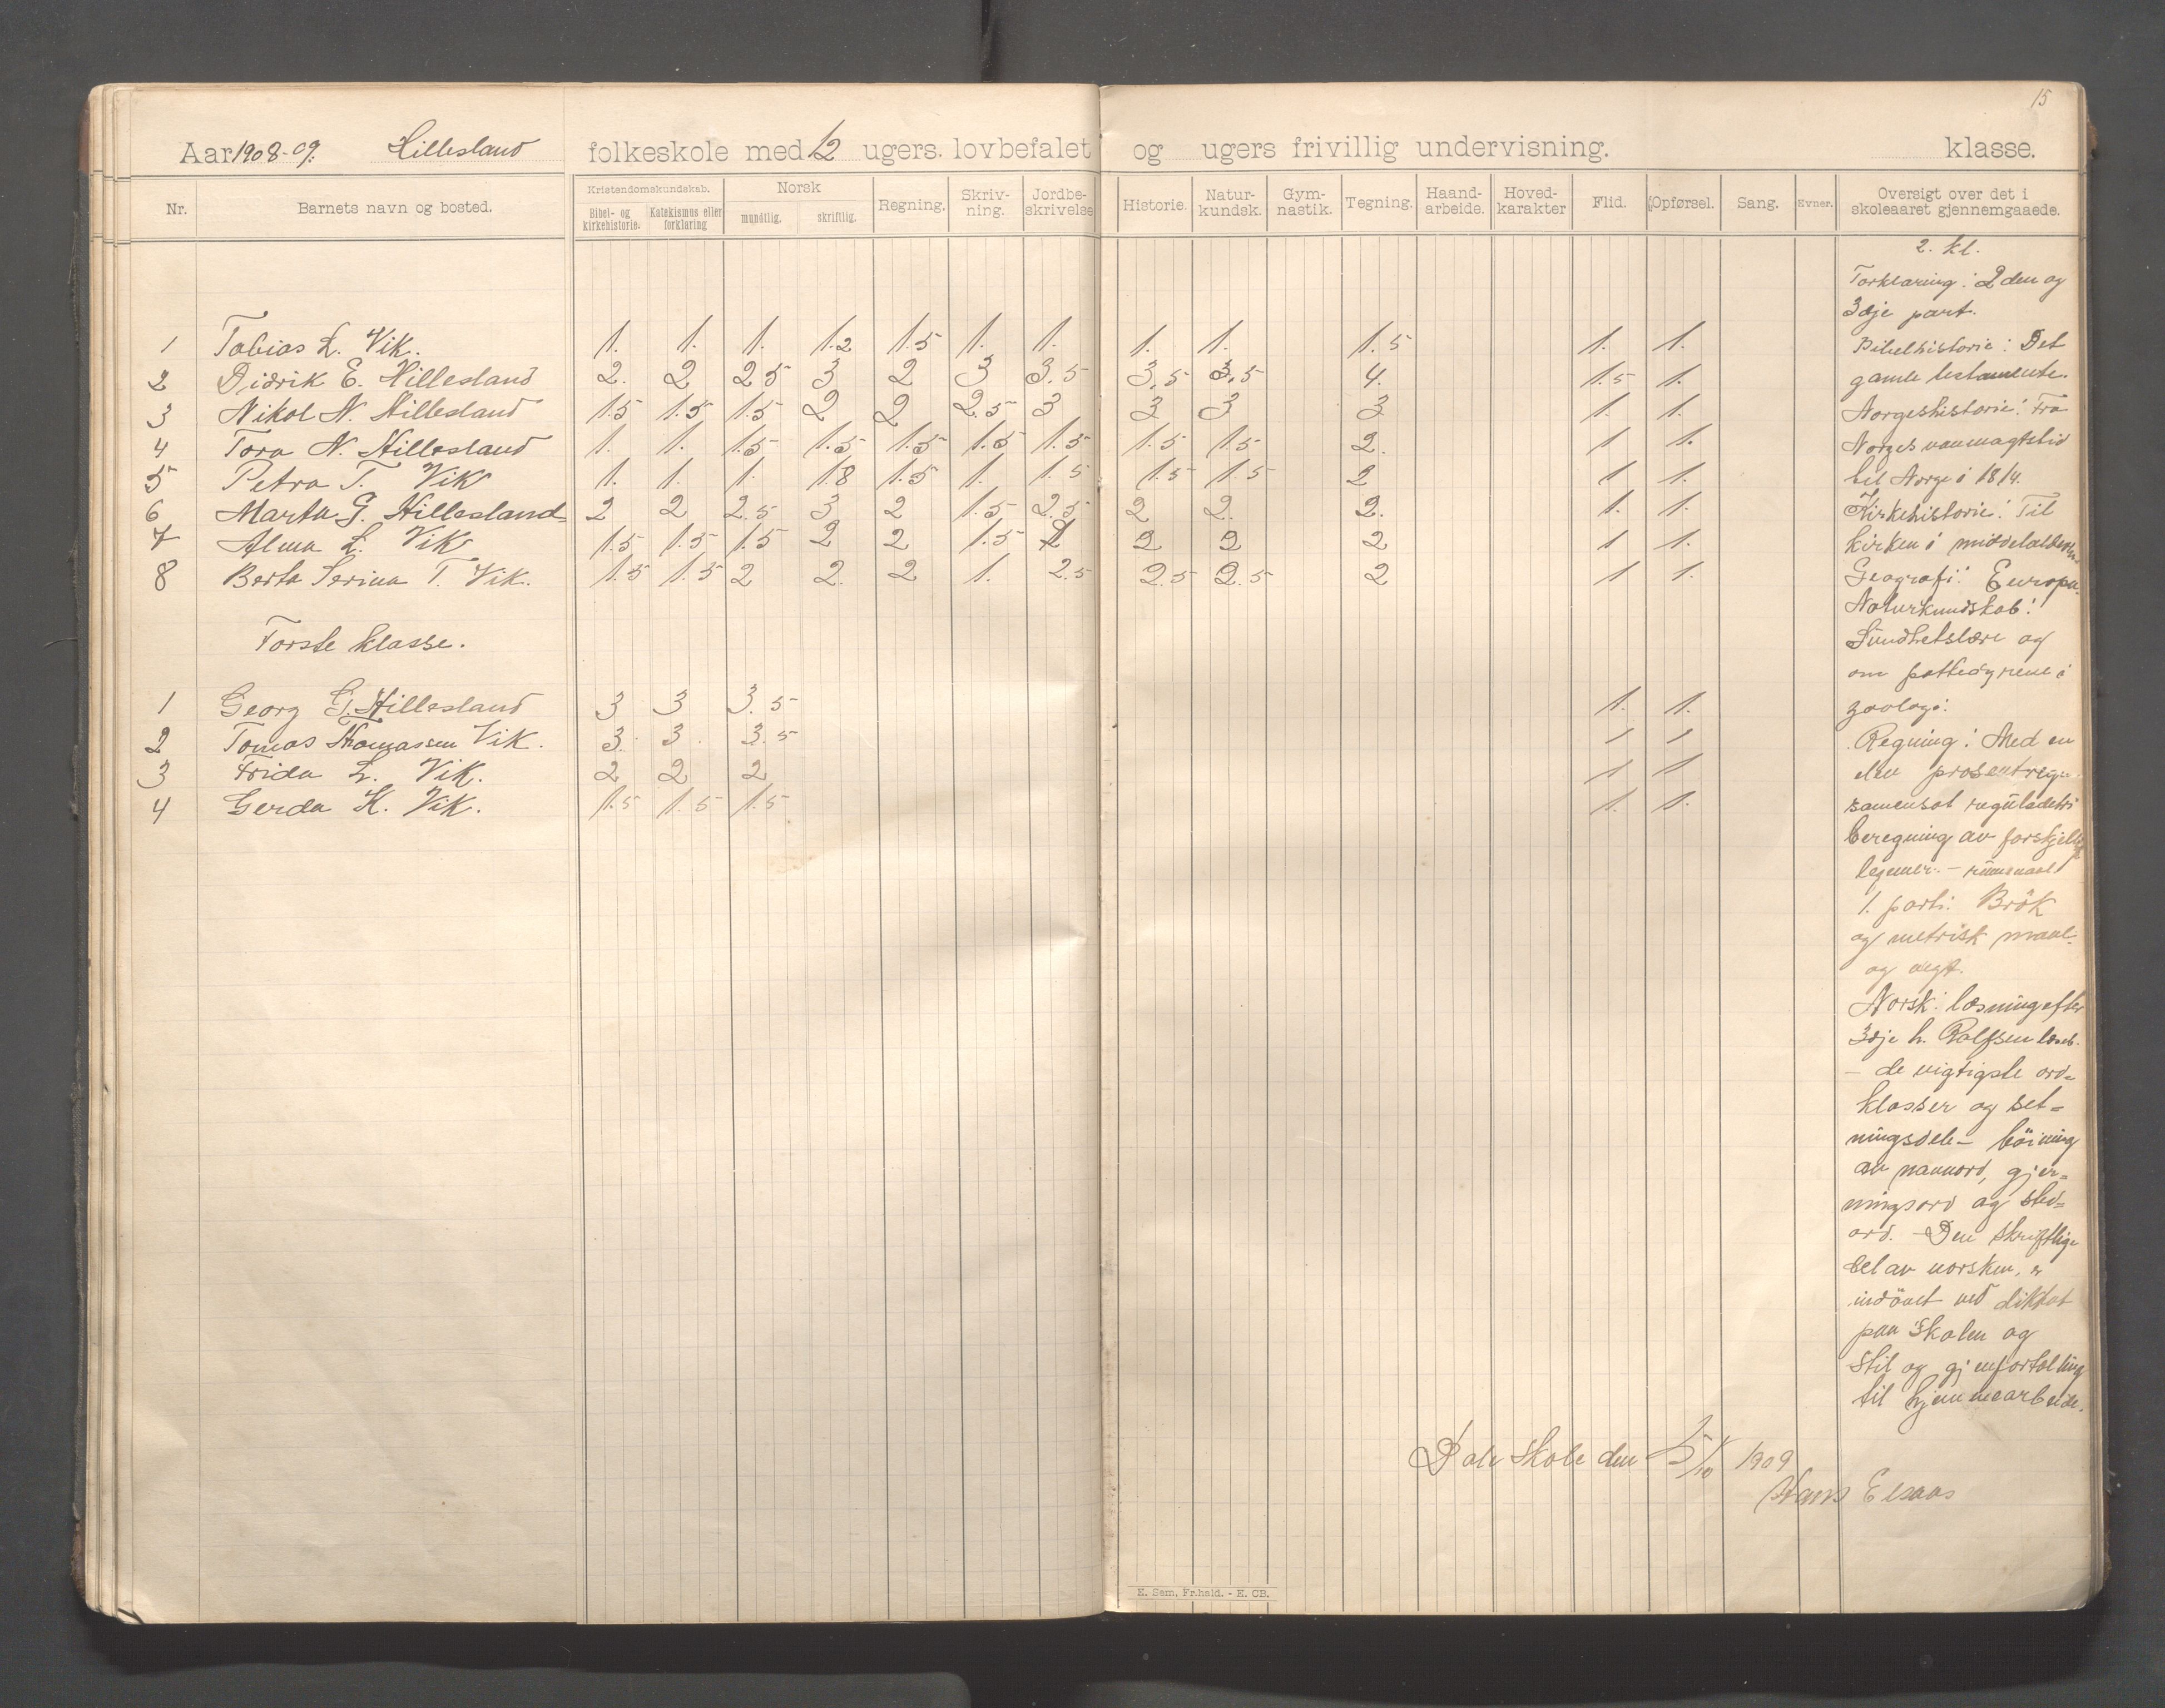 15
Aar 1908-09. Hillesland folkeskole med 12 ugers. lovbefalet og ugers frivillig undervisning. klasse.
Nr. Barnets navn og bosted. Kristendomskundskab. Bibel- og kirkehistorie. Katekismus eller forklaring Norsk mundtlig. skriftlig. Regning. Skriv-ning. Jordbe-skrivelse Historie. Natur-kundsk. Gym-nastik. Tegning. Haand-arbeide. Hoved-karakter Flid. Opførsel. Sang. Evner. Oversigt over det i skoleaaret gjennemgaaede.
1 Tobias L. Vik. 1. 1. 1. 1.2 1.5 1. 1. 1. 1. 1.5 1. 1.
2 Didrik E. Hillesland 2. 2 2.5 3 2 3 3.5 3.5 3.5 4. 1.5 1.
3 Nikol N. Hillesland 1.5 1.5 1.5 2 2 2.5 3 3 3 3 1. 1.
4 Tora N. Hillesland 1. 1. 1.5 1.5 1.5 1.5 1.5 1.5 1.5 2. 1 1.
5 Petra T. Vik 1. 1. 1. 1.8 1.5 1. 1.5 1.5 1.5 2 1 1.
6 Marta G. Hillesland 2 2 2.5 3 2 1.5 2.5 2 2. 2. 1. 1.
7 Alma L. Vik 1.5 1.5 1.5 2 2 1.5 2 2 2 2 1 1.
8 Berta Serina T. Vik. 1.5 1.5 2 2. 2 1. 2.5 2.5 2.5 2 1 1.
Forste klasse.
1 Georg G. Hillesland 3 3 3.5 1. 1.
2 Tomas Thomassen Vik. 3. 3. 3.5 1 1
3 Frida L. Vik. 2 2 2 1 1
4 Gerda K. Vik. 1.5 1.5 1.5 1. 1.
2. kl.
Forklaring: 2den og
3dje part.
Bibelhistorie: Det
gamle testamente.
Norgeshistorie: Fra
Norges vanmagtstid
til Norge i 1814.
Kirkehistorie: Til
kirken i middelalderen
Geografi: Europa.
Naturkundskab:
Sundhetslære og
om pattedyrene i
zoologi.
Regning: Med en
elev prosentregn.
samensat reguladetri
beregning av forskjellige
legemer. – rummaal
1. parti: Brök
og metrisk maal-
og vegt.
Norsk: læsning efter
3dje h. Rolfsen læseb.
– de vigtigste ord=
klasser og set=
ningsdele – böining
av navnord, gjer=
ningsord og sted=
ord. – Den skriftlige
del av norsken, er
indövet ved diktat
paa skolen og
stil og gjenfortelling
til hjemmearbeide.
Dale skole den 5/10 1909
Hans Elsaas
E. Sem, Fr.hald. - E. CB.